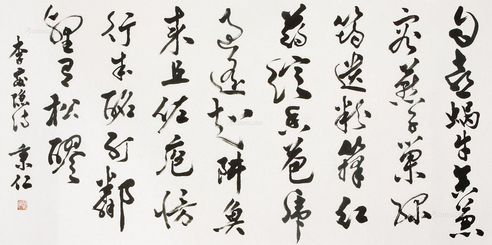 自喜蝸牛舍兼
容燕子巢綠
筠遺粉籜紅
药綻香苞虎
過遙知阱魚
來且佐庖慢
行成酩酊鄰
壁有松醪
李商隱詩 秉仁